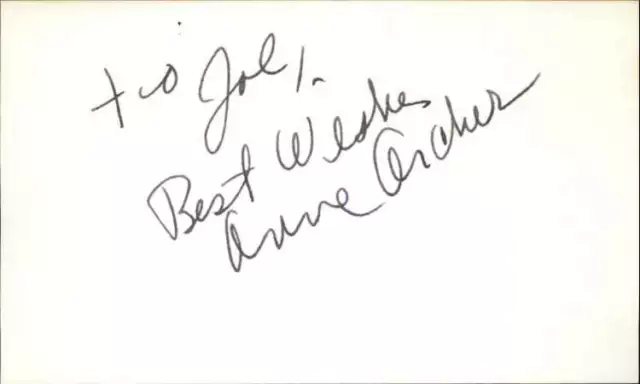 to Joe,
Best Wishes
Anne Archer